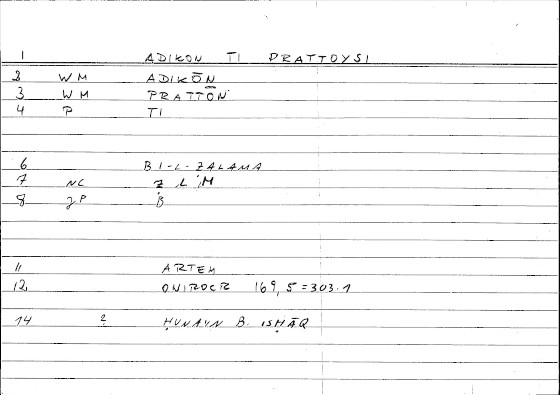 1 ADIKON TI PRATTOYSI
2 WM ADIKŌN
3 WM PRATTŌN
4 P TI
6 BI-L-ẒALAMA
7 NC Ẓ L M
8 JP B
11 ARTEM
12 ONIROCR 169,5=303.1
14 2 ḤUNAYN B. ISḤĀQ